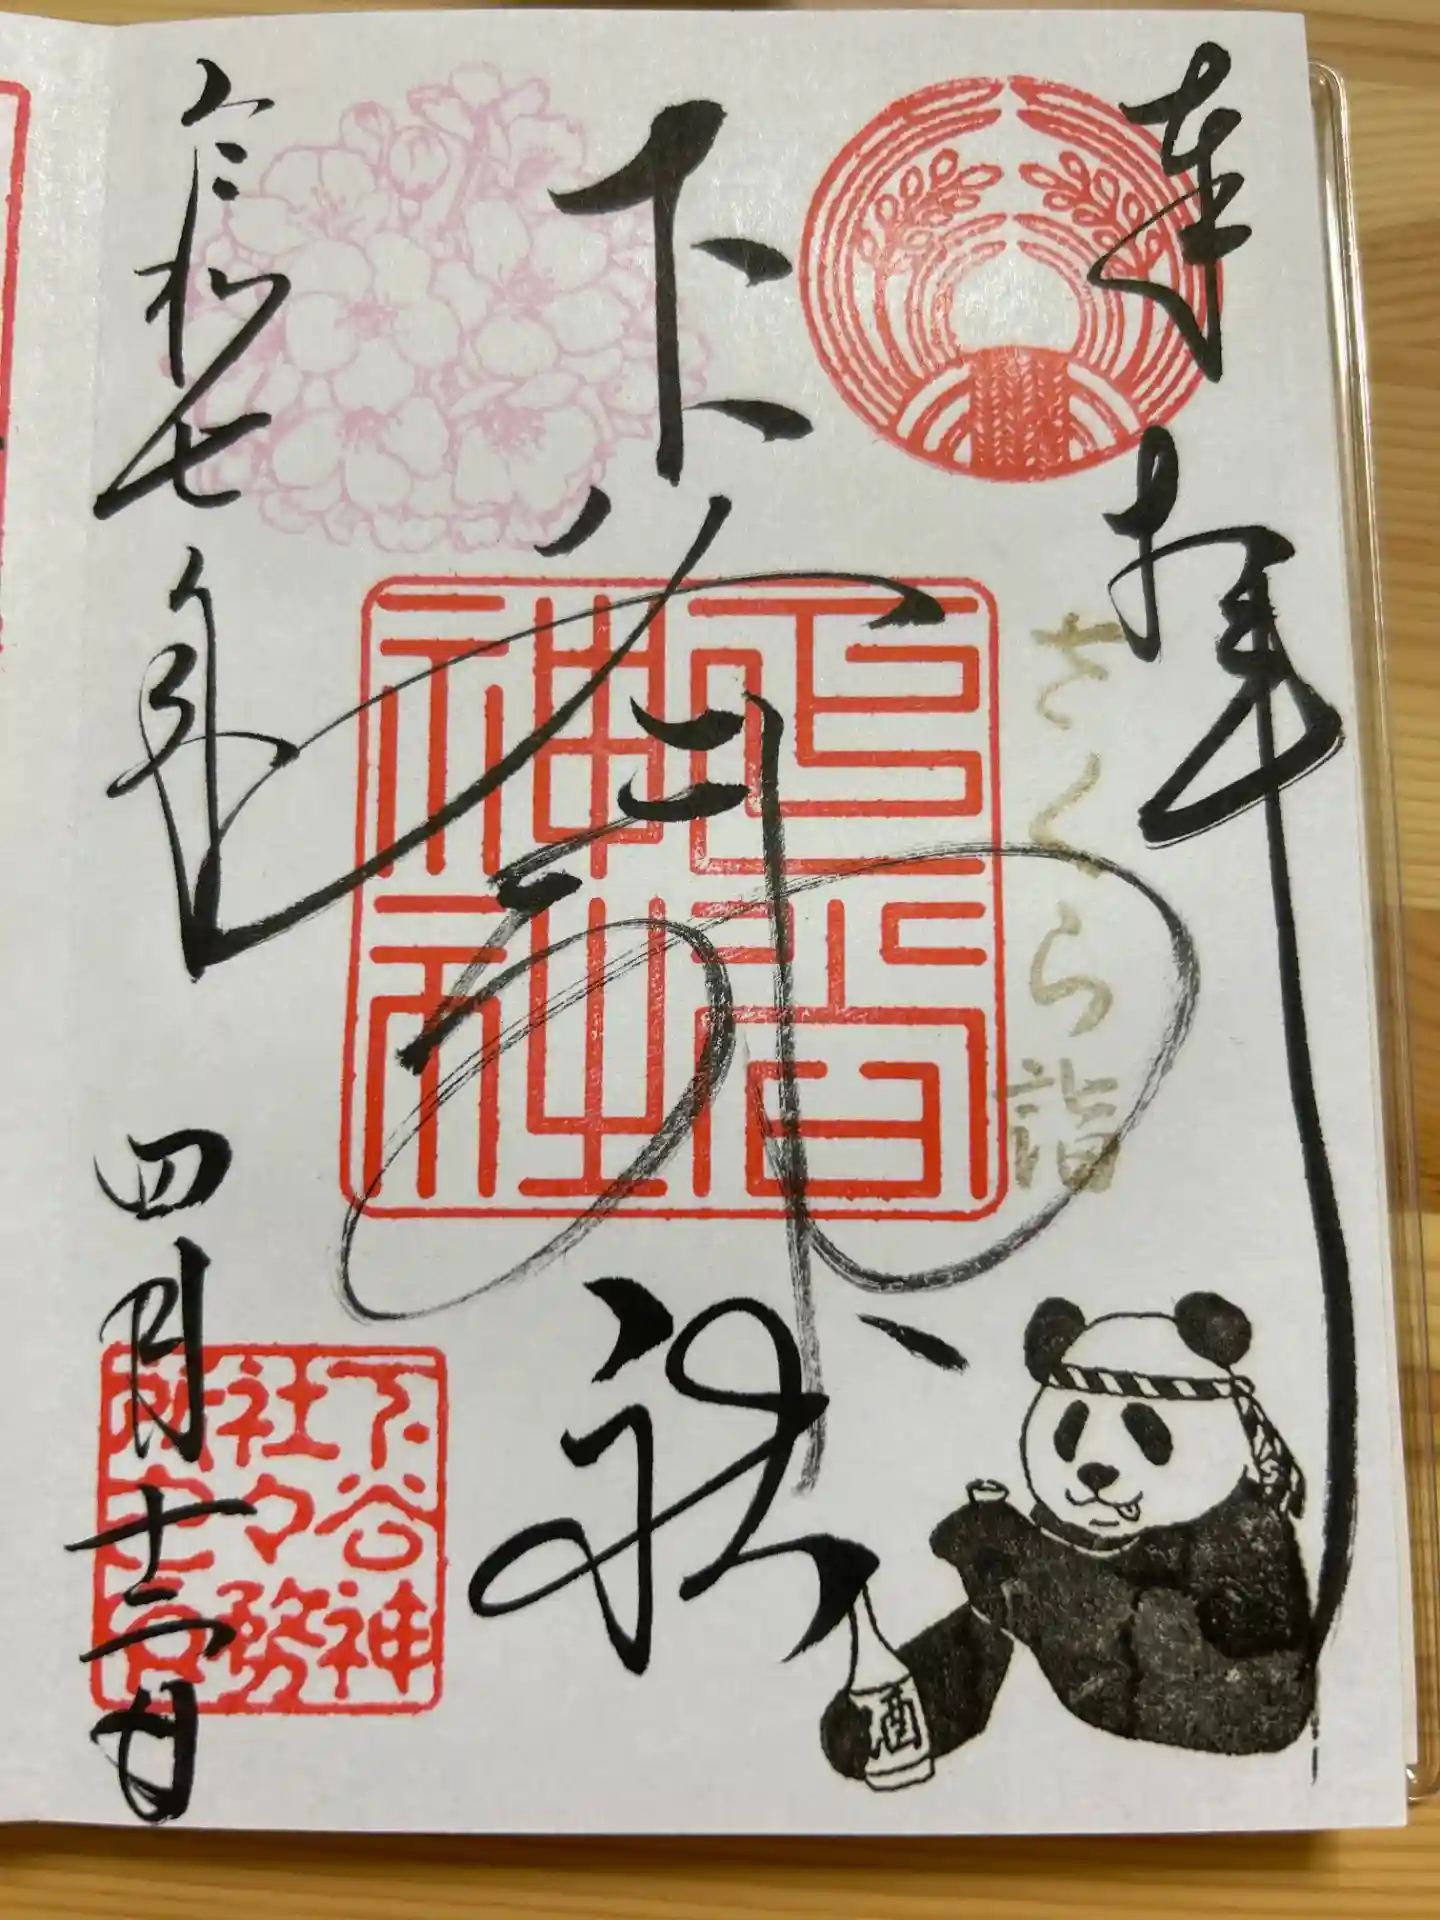 奉拝
さくら詣
下谷神社
下谷
神社
令和七年四月十二日
下谷神
社々務
所之印
酒